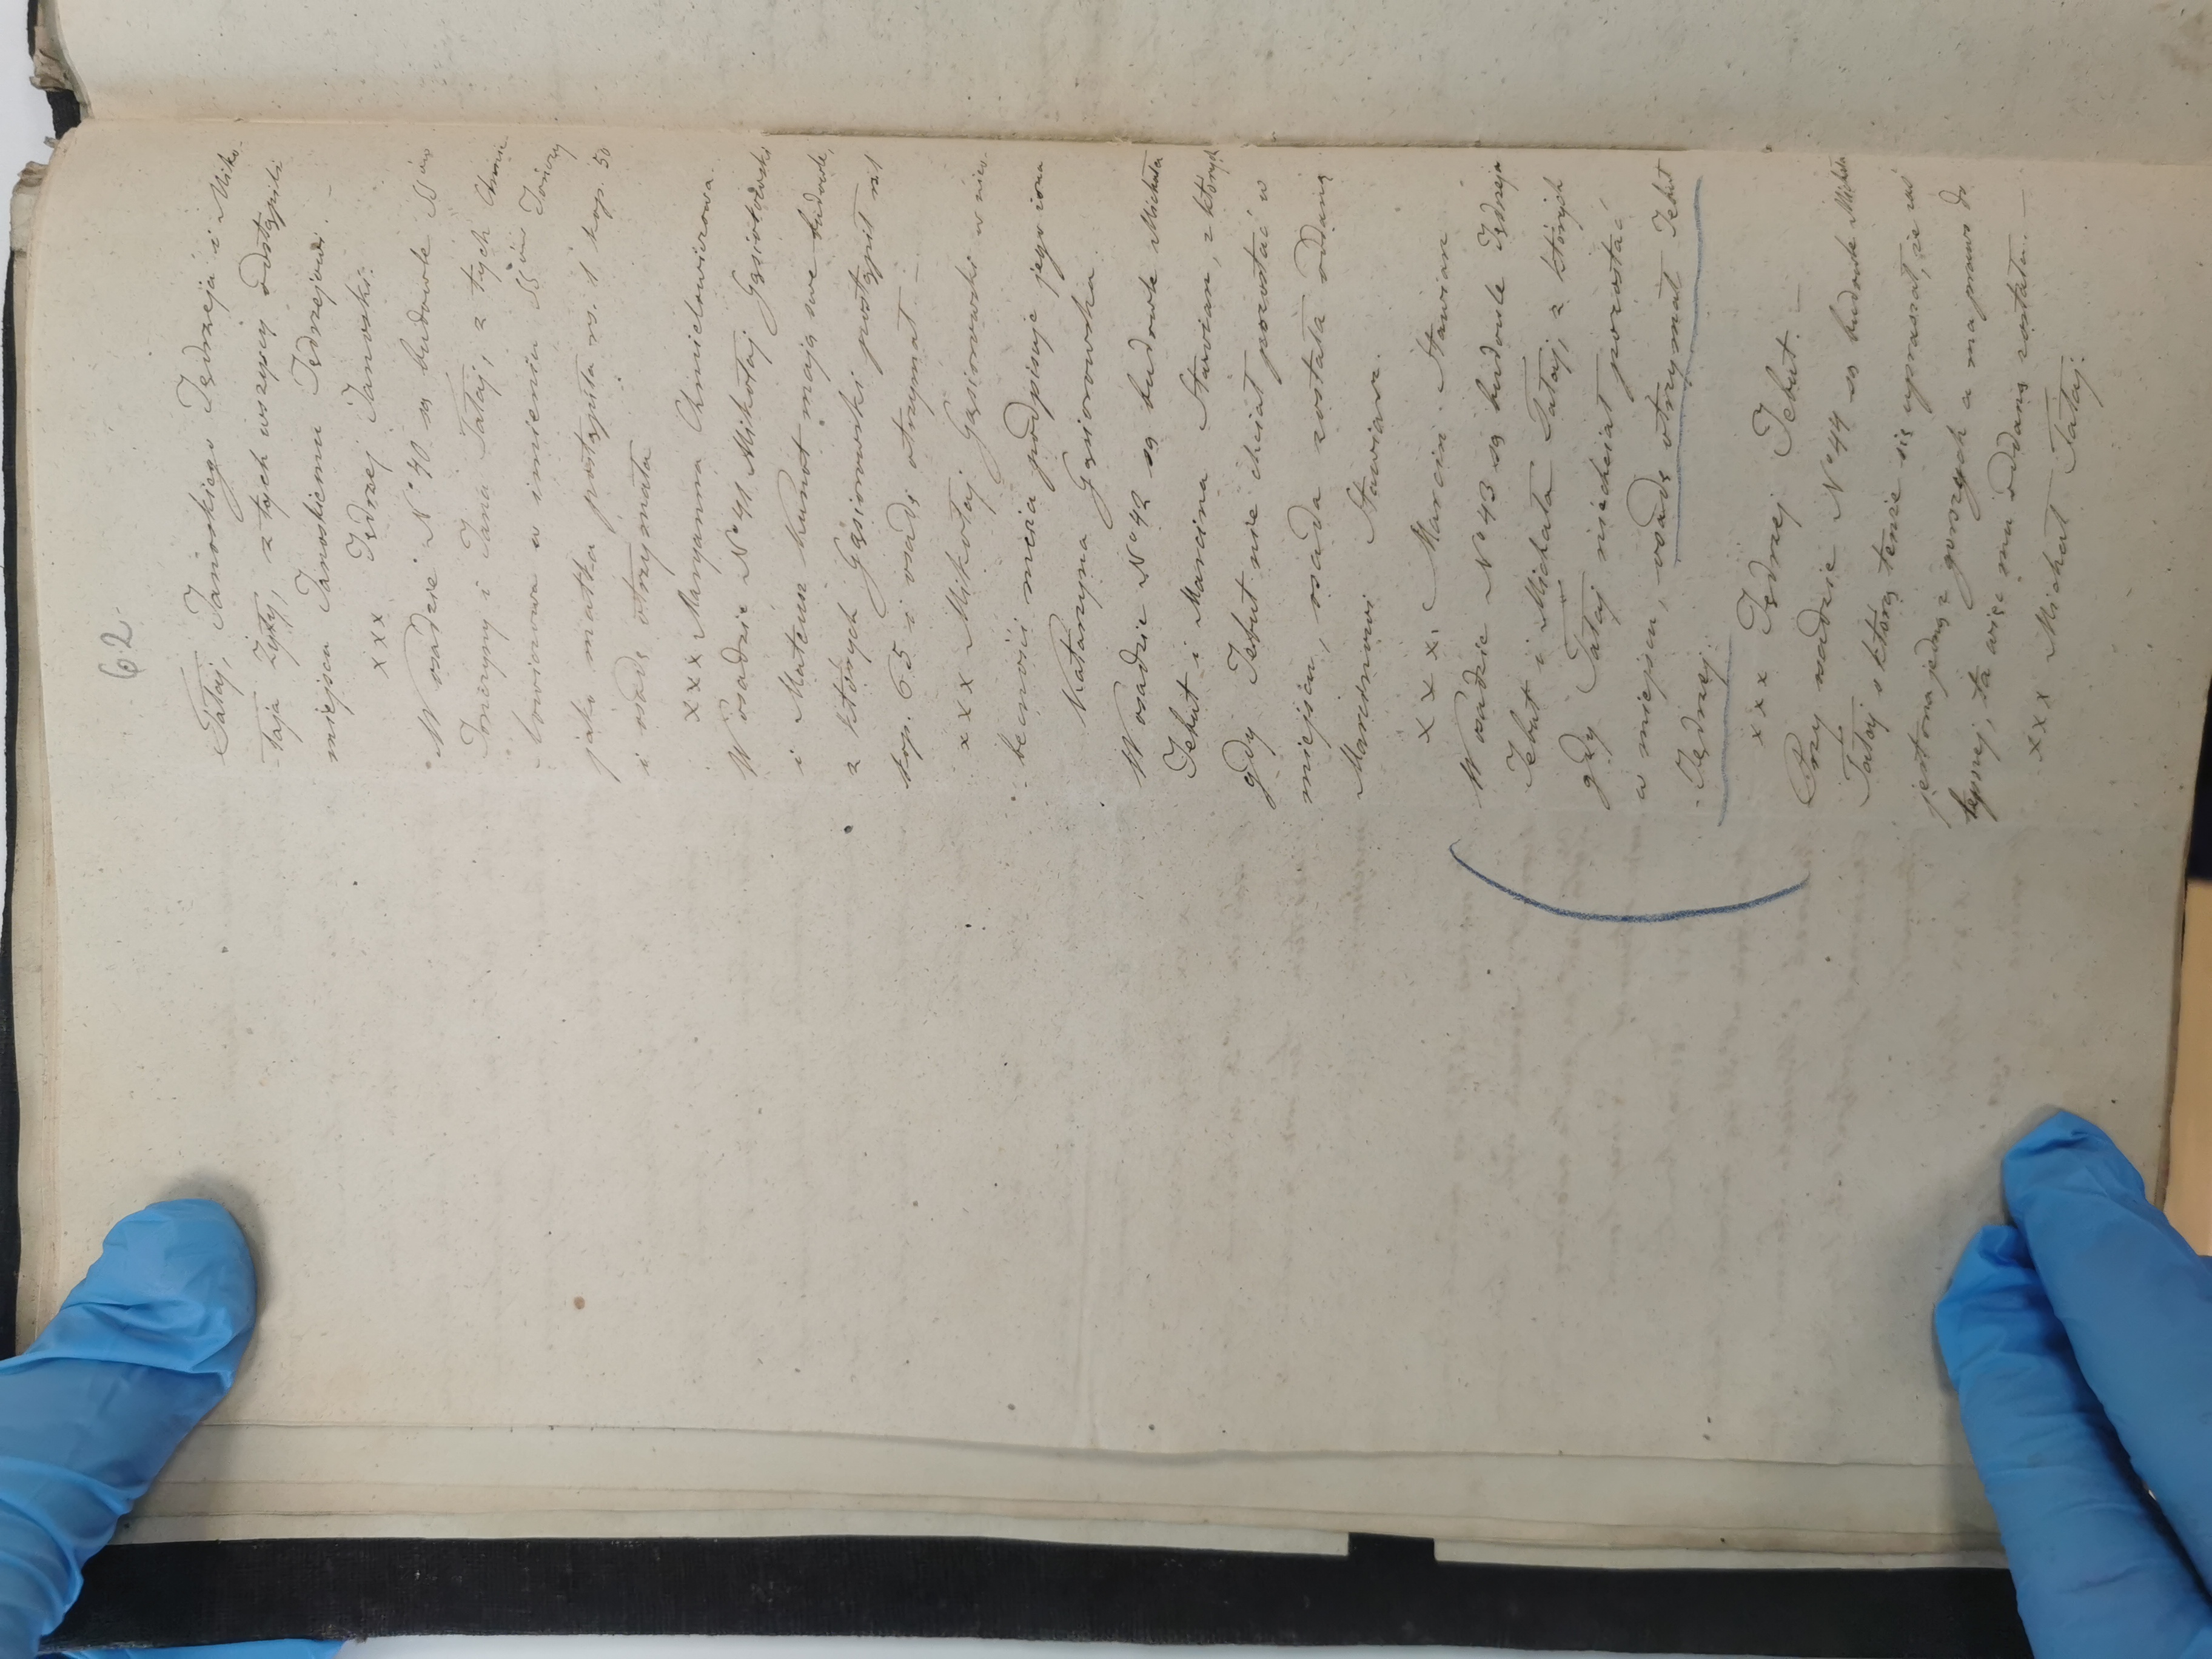 62
Tataj, Janoskiego Jędrzeja i Miko-
łaja Zyży, z tych wszyscy odstąpili
miejsca Janoskiemu Jędrzejowi. —
xxx Jędrzej Janoski.
W osadzie N° 40 są budowle
i Jana Tataj, z tych Chmie
lowiczowa w imieniu
jako matka postąpiła rs. 1 kop. 50
i osadę otrzymała
xxx Maryanna Chmielowiczowa.
W osadzie N° 41 Mikołaj Gąsiorowski
i Mateusz Kurnot mają swe budowle,
z których Gąsiorowski postąpił rs 1
kop. 65 i osadę otrzymał. —
xxx Mikołaj Gąsiorowski w nieo-
becności męża podpisuje jego żona
Katarzyna Gąsiorowska.
W osadzie N° 42 są budowle Michała
Jebut i Marcina Stawiarz, z których
gdy Jebut nie chciał pozostać w
miejscu, osada została oddaną
Marcinowi Stawiarz.
xxx. Marcin Stawiarz
W osadzie N° 43 są budowle Jędrzeja
Jebut i Michała Tataj, z których
gdy Tataj niechciał pozostać
w miejscu, osadę otrzymał Jebut
Jędrzej.
xxx Jędrzej Jebut. —
Przy osadzie N° 44 są budowle Michała
Tataj o którą tenże się upraszał, że zaś
jest ona jedną z gorszych a ma prawo do
lepszej, ta więc mu oddaną została. —
xxx Michał Tataj.